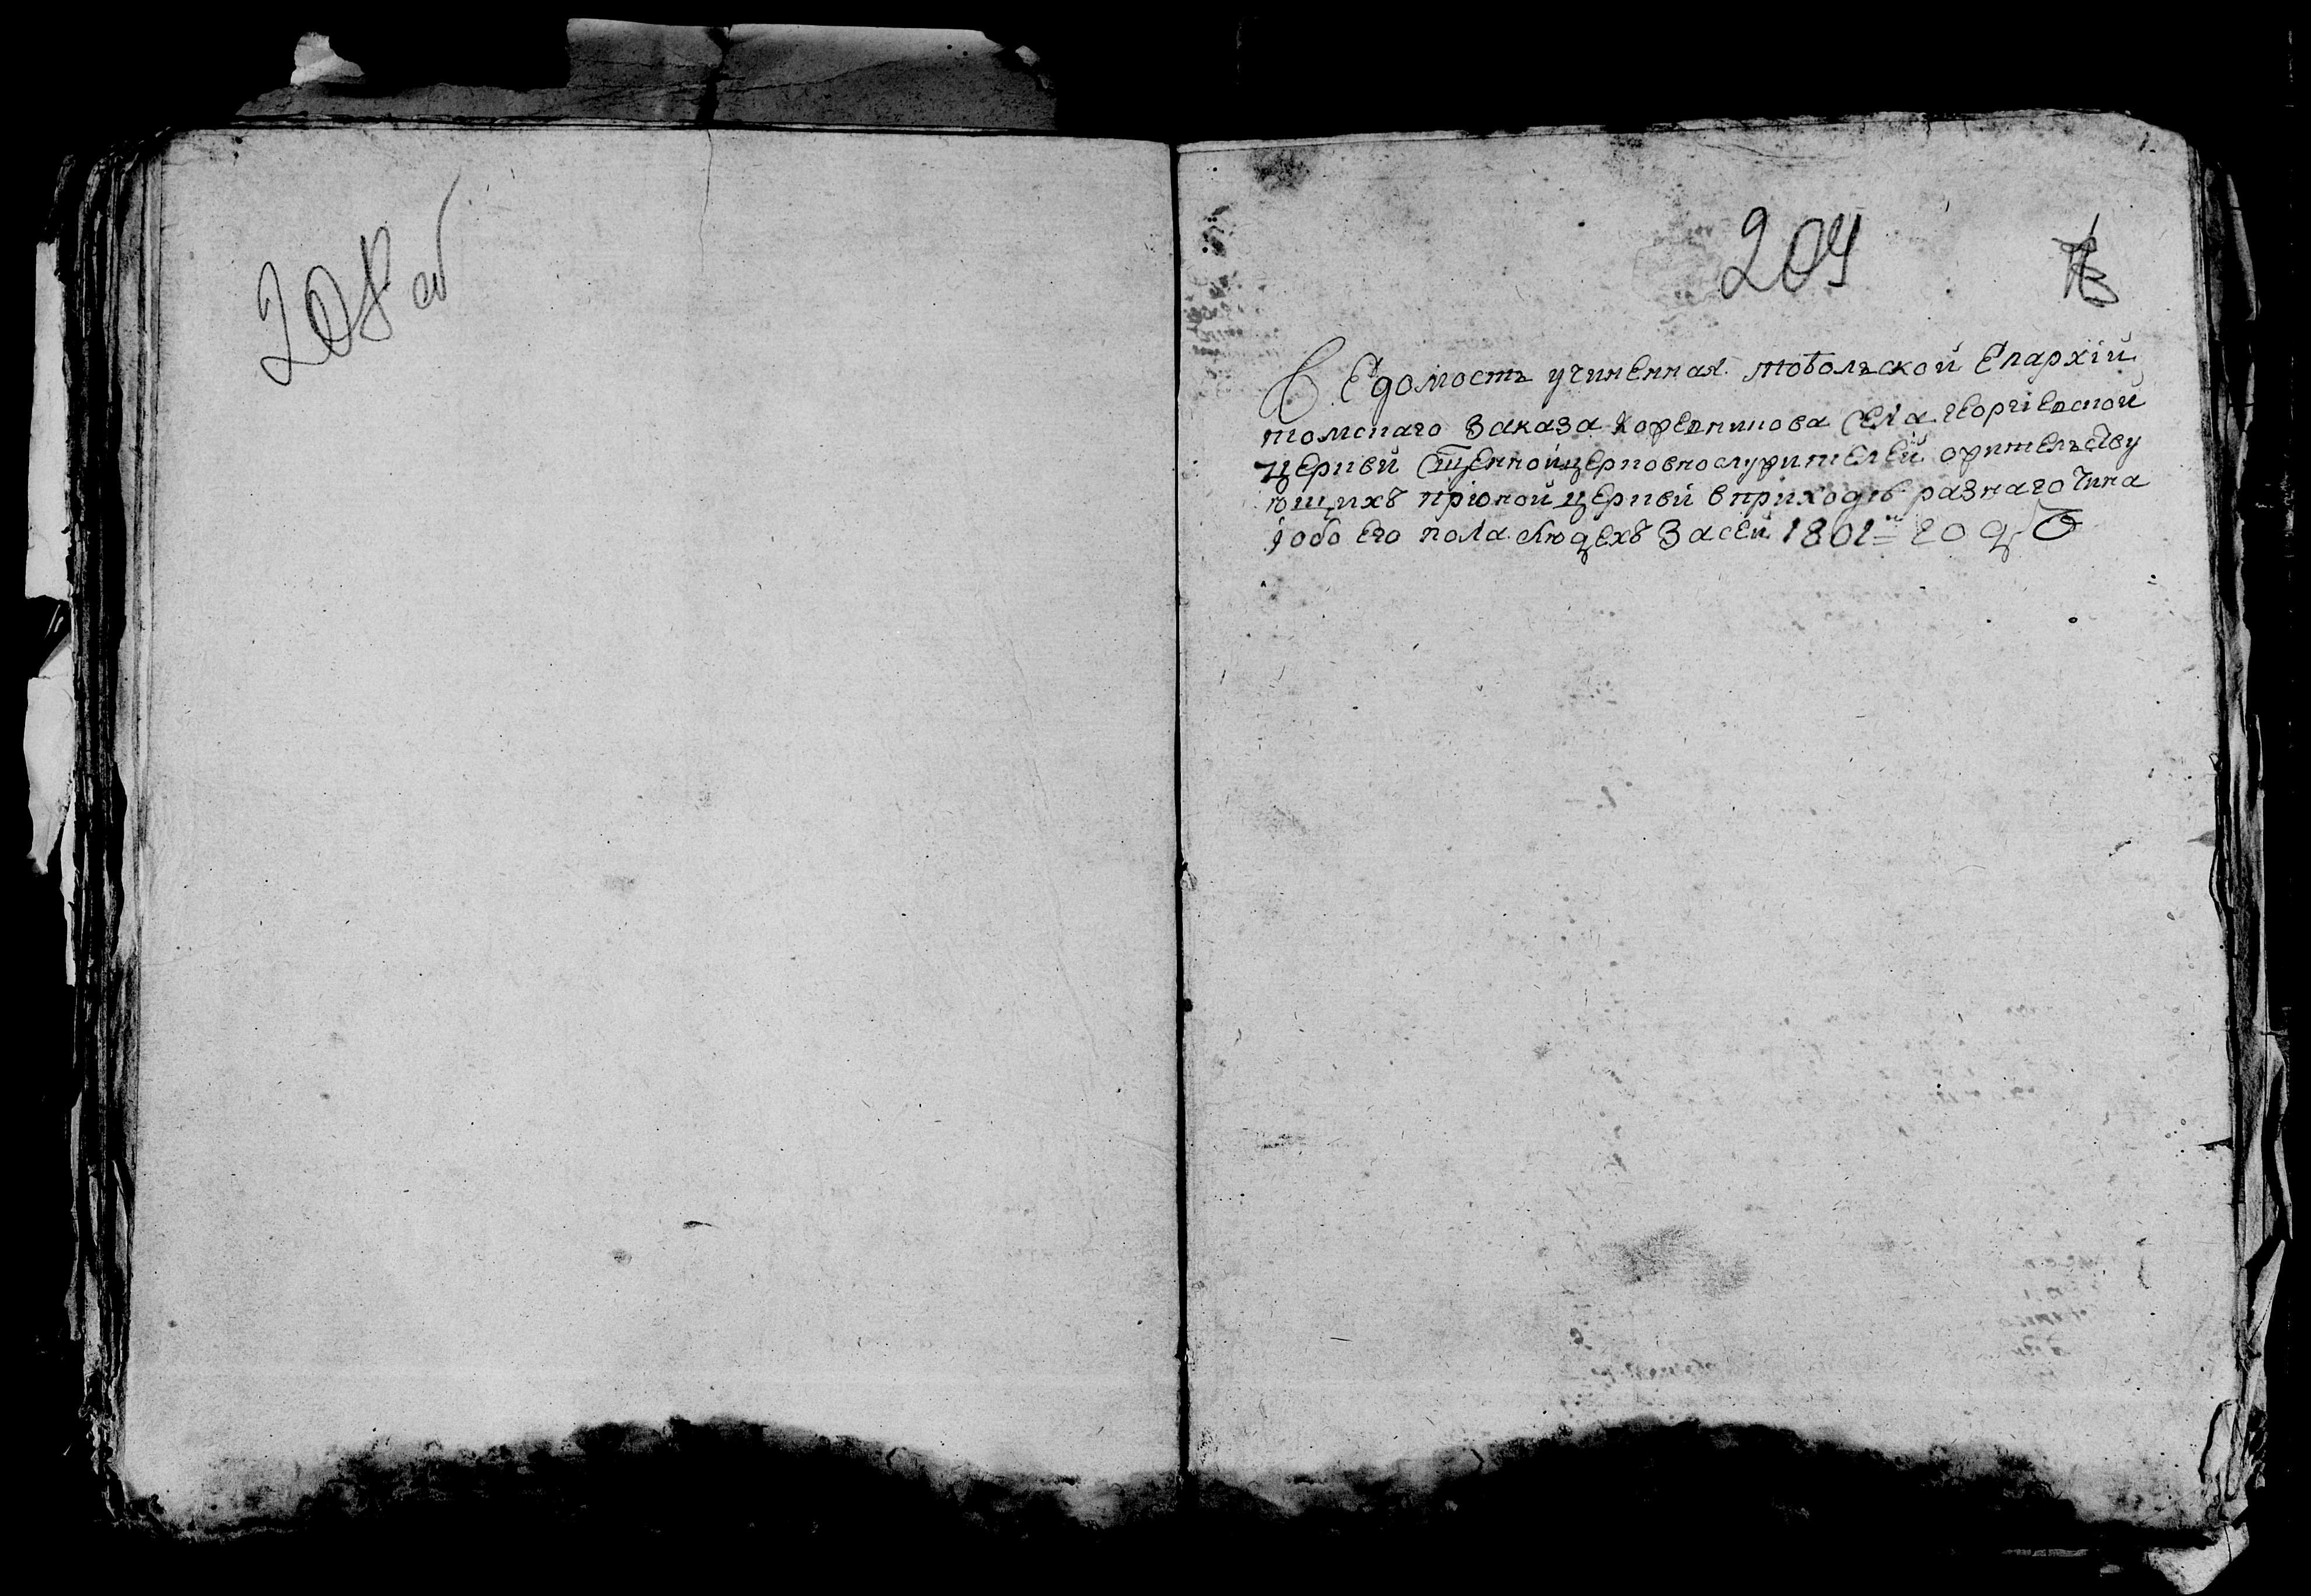 208 об
209
ВЕдомость учинЕнная тобольской Епархіи
томскаго Заказа КорЕвникова сЕла гЕоргіЕвской
цЕрквй сщЕнно й цЕрковнослужитЕлЕй о житЕльству
ющихъ прі оной цЕрквй в приходѣ разнаго чина
і обоЕго пола людЕхъ За сЕй 1801й годЪ